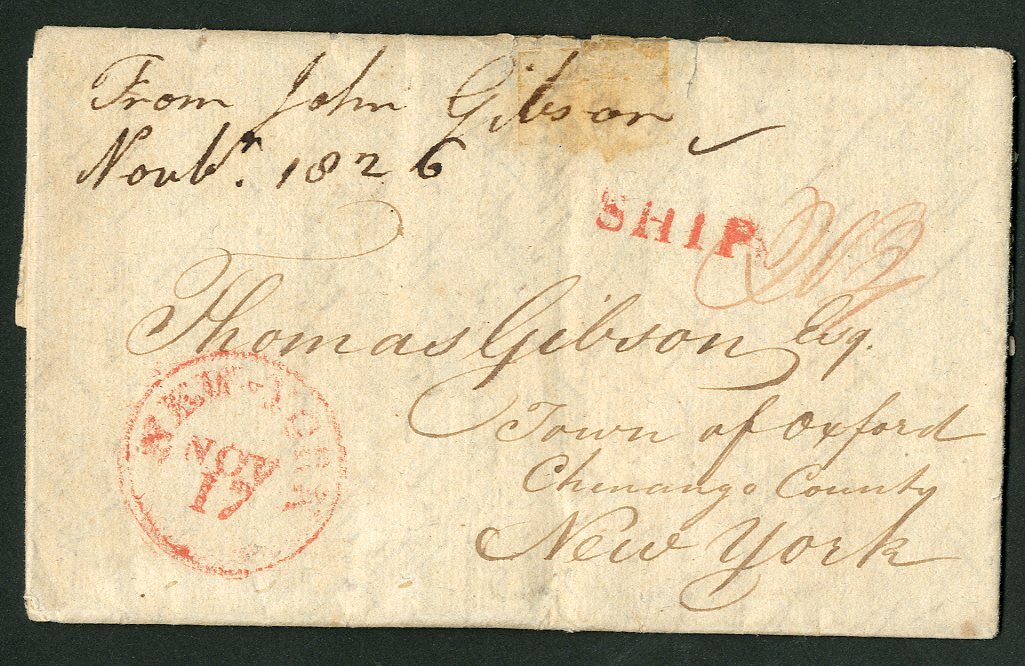 From John Gibson
Novbr. 1826
SHIP
Thomas Gibson Esq.
Town of Oxford
Chenango County
New York
NEW-YORK
NOV
17